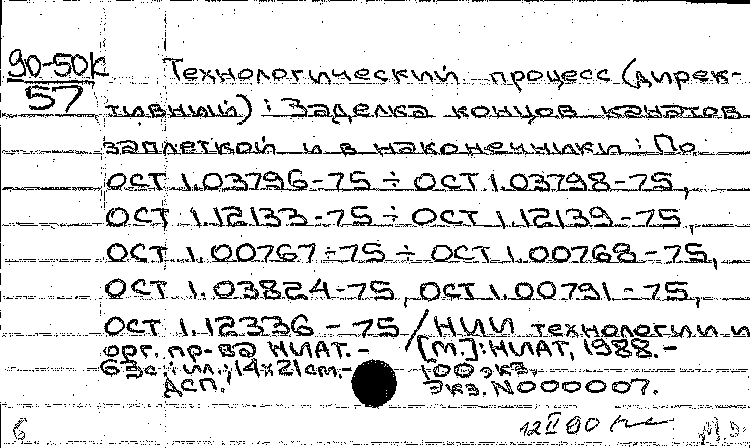 90-50К
57
Технологический процесс (дирек-
тивный): Заделка концов канатов
заплеткой и в наконечники: По
ОСТ 1.03796-75 ÷ ОСТ 1.03798-75,
ОСТ 1.12133-75 ÷ ОСТ 1.12139-75,
ОСТ 1.00767-75 ÷ ОСТ 1.00768-75,
ОСТ 1.03824-75, ОСТ 1.00791-75,
ОСТ 1.12336-75 / НИИ технологии и
орг. пр-ва НИАТ. - [М.]: НИАТ, 1988. -
63 с.: ил.; 14х21 cm. - 100 экз.
ДСП. Экз. N000007.
6 12 II 90